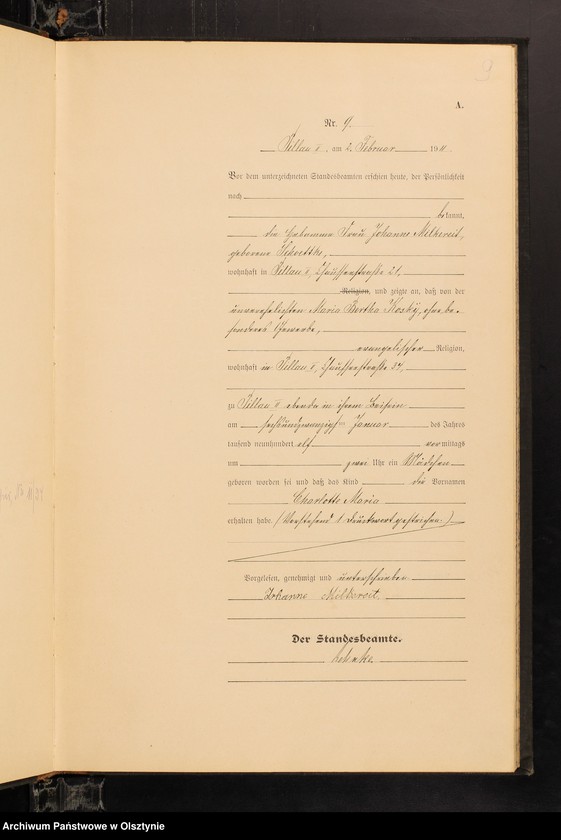 9
A.
Nr. 9.
Pillau II, am 2. Februar 1911.
Vor dem unterzeichneten Standesbeamten erschien heute, der Persönlichkeit
nach
bekannt,
die Hebamme Frau Johanne Milkereit,
geborene
wohnhaft in Pillau II, Chausseestraße 21,
Religion, und zeigte an, daß von der
unverehelichten Maria Bertha Kosky, ohne be-
sonderes Gewerbe,
evangelischer Religion,
wohnhaft in Pillau II, Chausseestraße 34,
zu Pillau II ebenda in ihrem Beisein
am sechsundzwanzigsten Januar des Jahres
tausend neunhundert elf vormittags
um zwei Uhr ein Mädchen
geboren worden sei und daß das Kind die Vornamen
Charlotte Maria
erhalten habe. (Vorstehend 1 Druckwort gestrichen.)
Vorgelesen, genehmigt und unterschrieben
Johanne Milkereit
Der Standesbeamte.
Archiwum Państwowe w Olsztynie